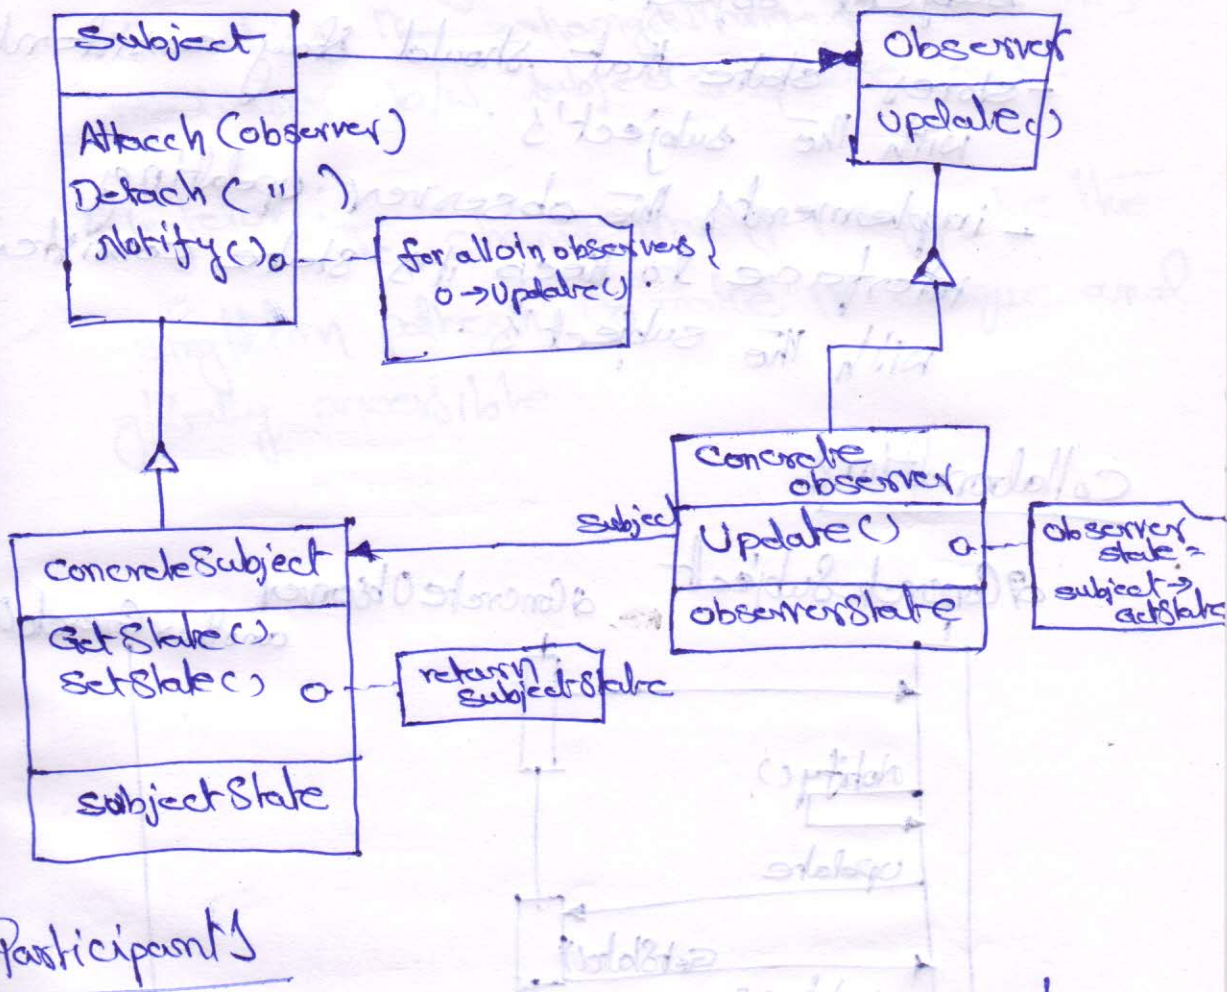 Subject
Attacch (observer)
Detach ( " )
Notify()
for all o in observers {
o → Update()
Observer
update()
Concrete
observer
Update()
observerState
Observer
state =
subject →
GetState
subject
ConcreteSubject
GetState()
SetState()
return
subjectState
subjectState
Participants